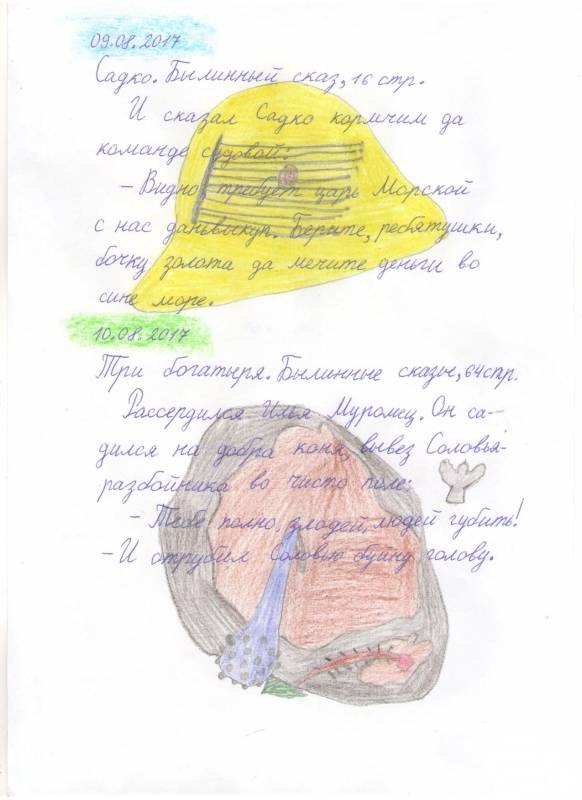 09.08.2017
Садко. Былинный сказ, 16 стр.
И сказал Садко кормчим да
команде судовой:
– Видно, требует царь Морской
с нас даньвыкуп. Берите, ребятушки,
бочку золота да мечите деньги во
сине море.
10.08.2017
Три богатыря. Былинные сказы, 64 стр.
Рассердился Илья Муромец. Он са-
дился на добра коня, вывез Соловья-
разбойника во чисто поле:
– Тебе полно, злодей, людей губить!
– И отрубил Соловью буйну голову.